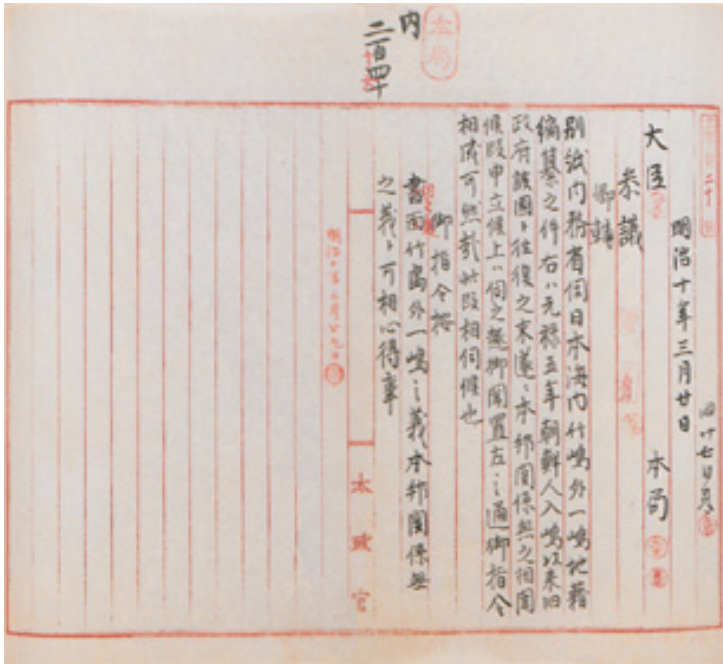 本局
内
二百四十
明治十年三月廿日
大臣 本局
参議
卿輔
別紙内務省伺日本海内竹嶋外一嶋地籍
編纂之件右ハ元禄五年朝鮮人入嶋以来旧
政府該国ト往復之末遂ニ本邦関係無之相聞
候段申立候上ハ伺之趣御聞置左之通御指令
相成可然哉此段相伺候也
御指令按
書面竹島外一嶋之義本邦関係無
之義ト可相心得事
明治十年三月廿九日
太政官